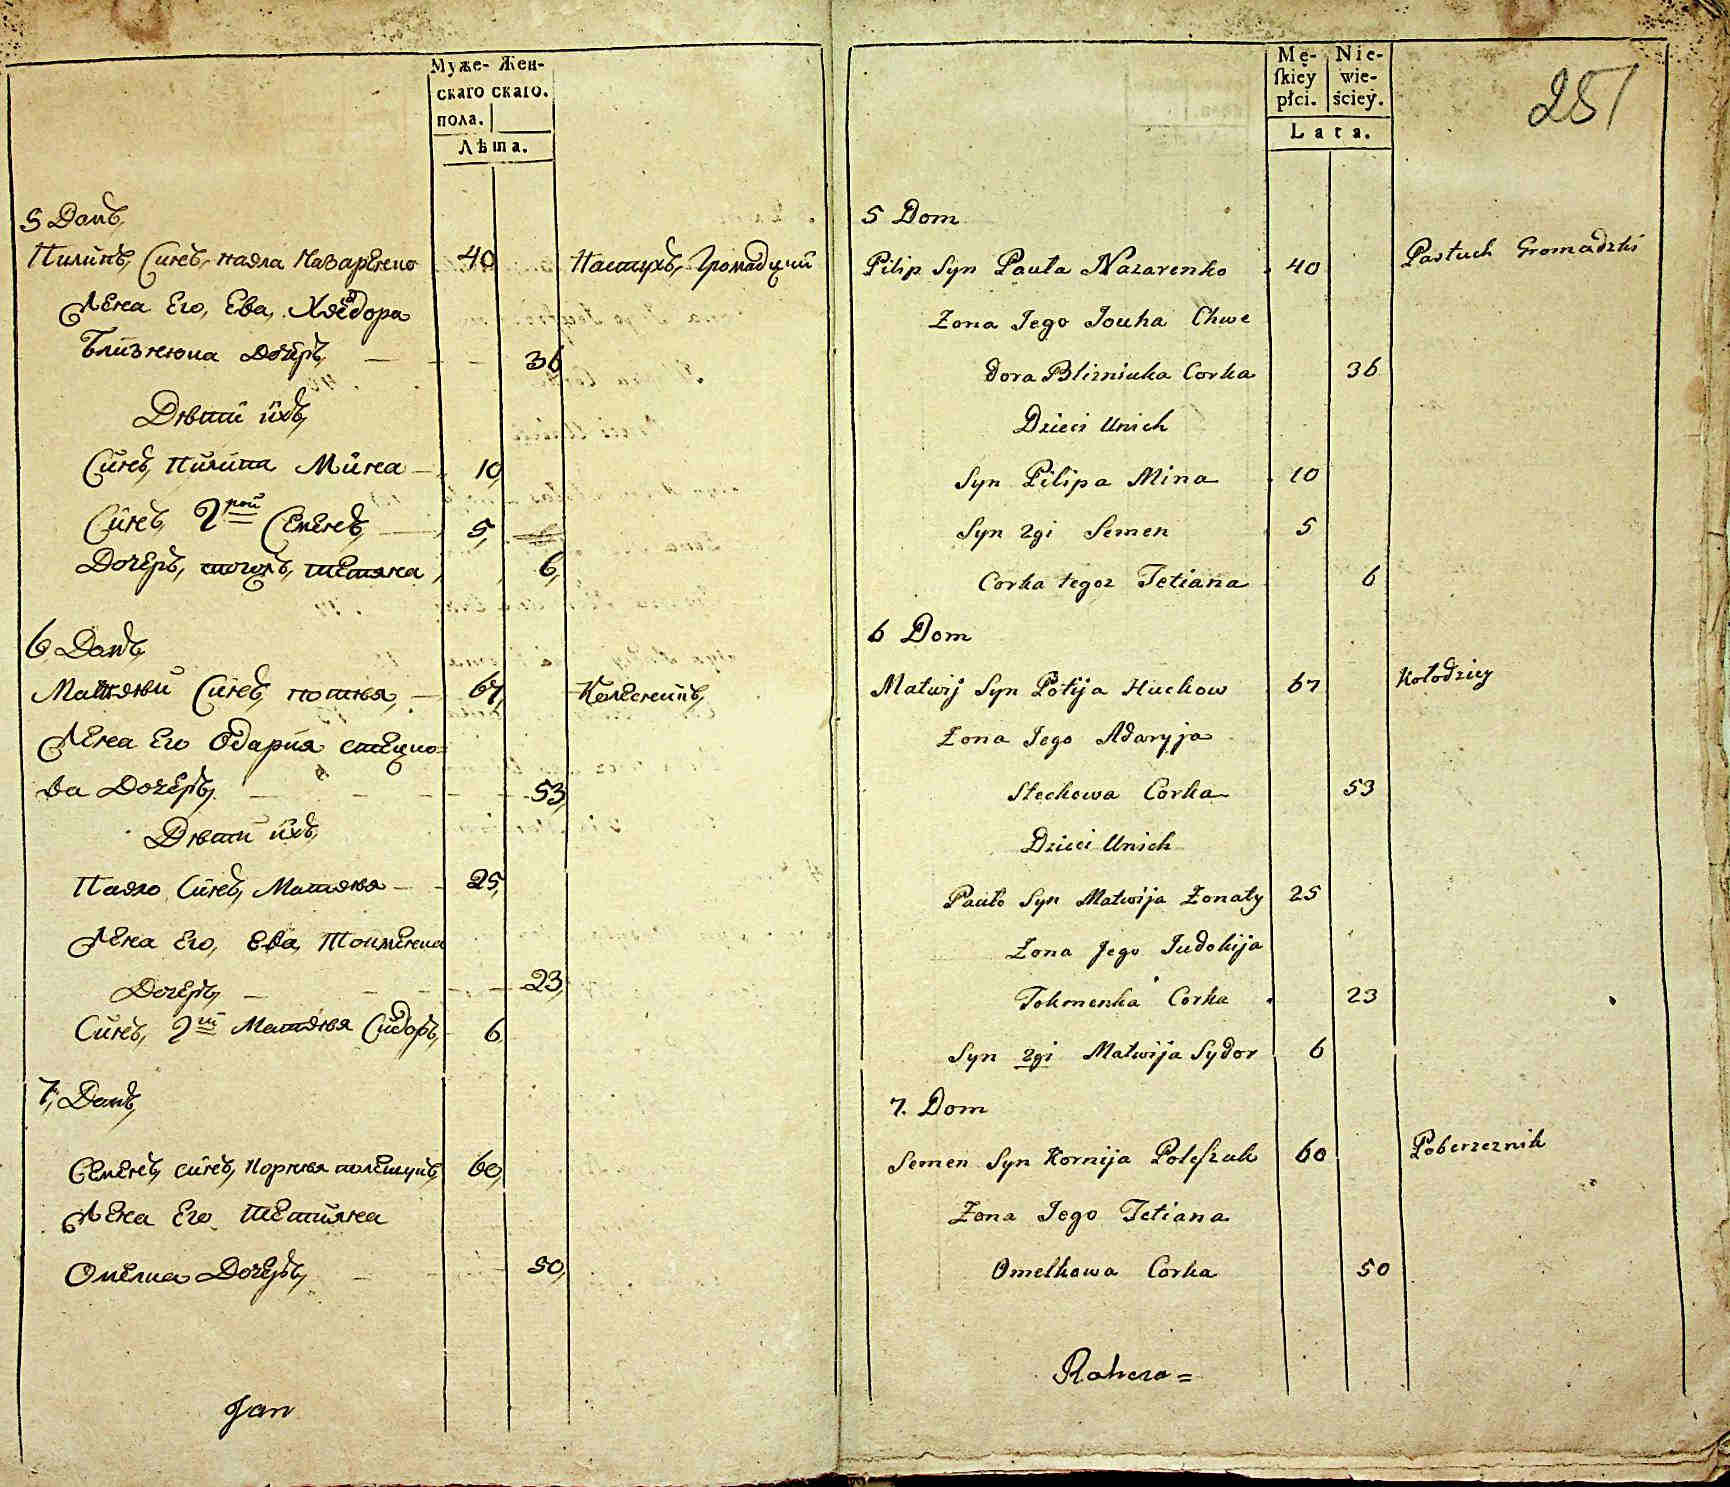 Муже- Жен-
скаго скаго.
пола.
Лѣта.
5 Домъ
Пилипъ, Синъ, павла Назаренко 40 Пастухъ, Громадцкий
Жена Его, Ева, Хведора
Близнюка Дочеръ, 36
Дѣти ихъ,
Синъ, Пилипа Мина 10,
Синъ, 2рой Семенъ, 5,
Дочеръ, тогожъ, тетяна, 6,
6, Домъ,
Матвѣй Синъ, потѣя, 67, Колесникъ,
Жена Его Одария стецко=
ва Дочеръ, 53,
Дѣти ихъ,
Павло, Синъ, Матвѣя 25,
Жена Его, Ева, Токменка
Дочеръ, 23,
Синъ, 2й Матвѣя Сидоръ, 6
7, Домъ,
Семенъ, синъ, Корнѣя полещукъ, 60,
Жена Его Тетияна
Омелка Дочеръ, 50,
Jan
Mę- Nie-
ſkiey wie-
płci. ściey.
Lata.
251
5 Dom
Pilip Syn Pauła Nazarenko 40 Pastuch Gromadzki
Zona Jego Jouha Chwe
dora Blizniuka Corka 36
Dzieci Unich
Syn Pilipa Mina 10
Syn 2gi Semen 5
Corka tegoz Tetiana 6
6 Dom
Matwij Syn Potija Huckow 67 Kołodziey
Zona Jego Adaryja
Steckowa Corka 53
Dzieci Unich
Pauło Syn Matwija Zonaty 25
Zona Jego Judokija
Tokmenka Corka 23
Syn 2gi Matwija Sydor 6
7. Dom
Semen Syn Kornija Poleſzuk 60 Poberzeznik
Zona Jego Tetiana
Omelkowa Corka 50